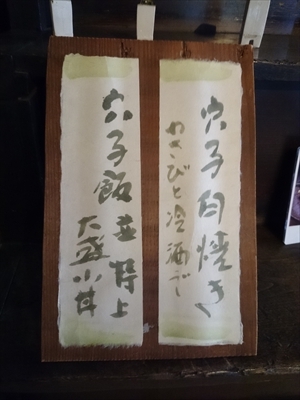 穴子白焼き
わさびと冷酒で
穴子飯 並 特上
大盛 小丼